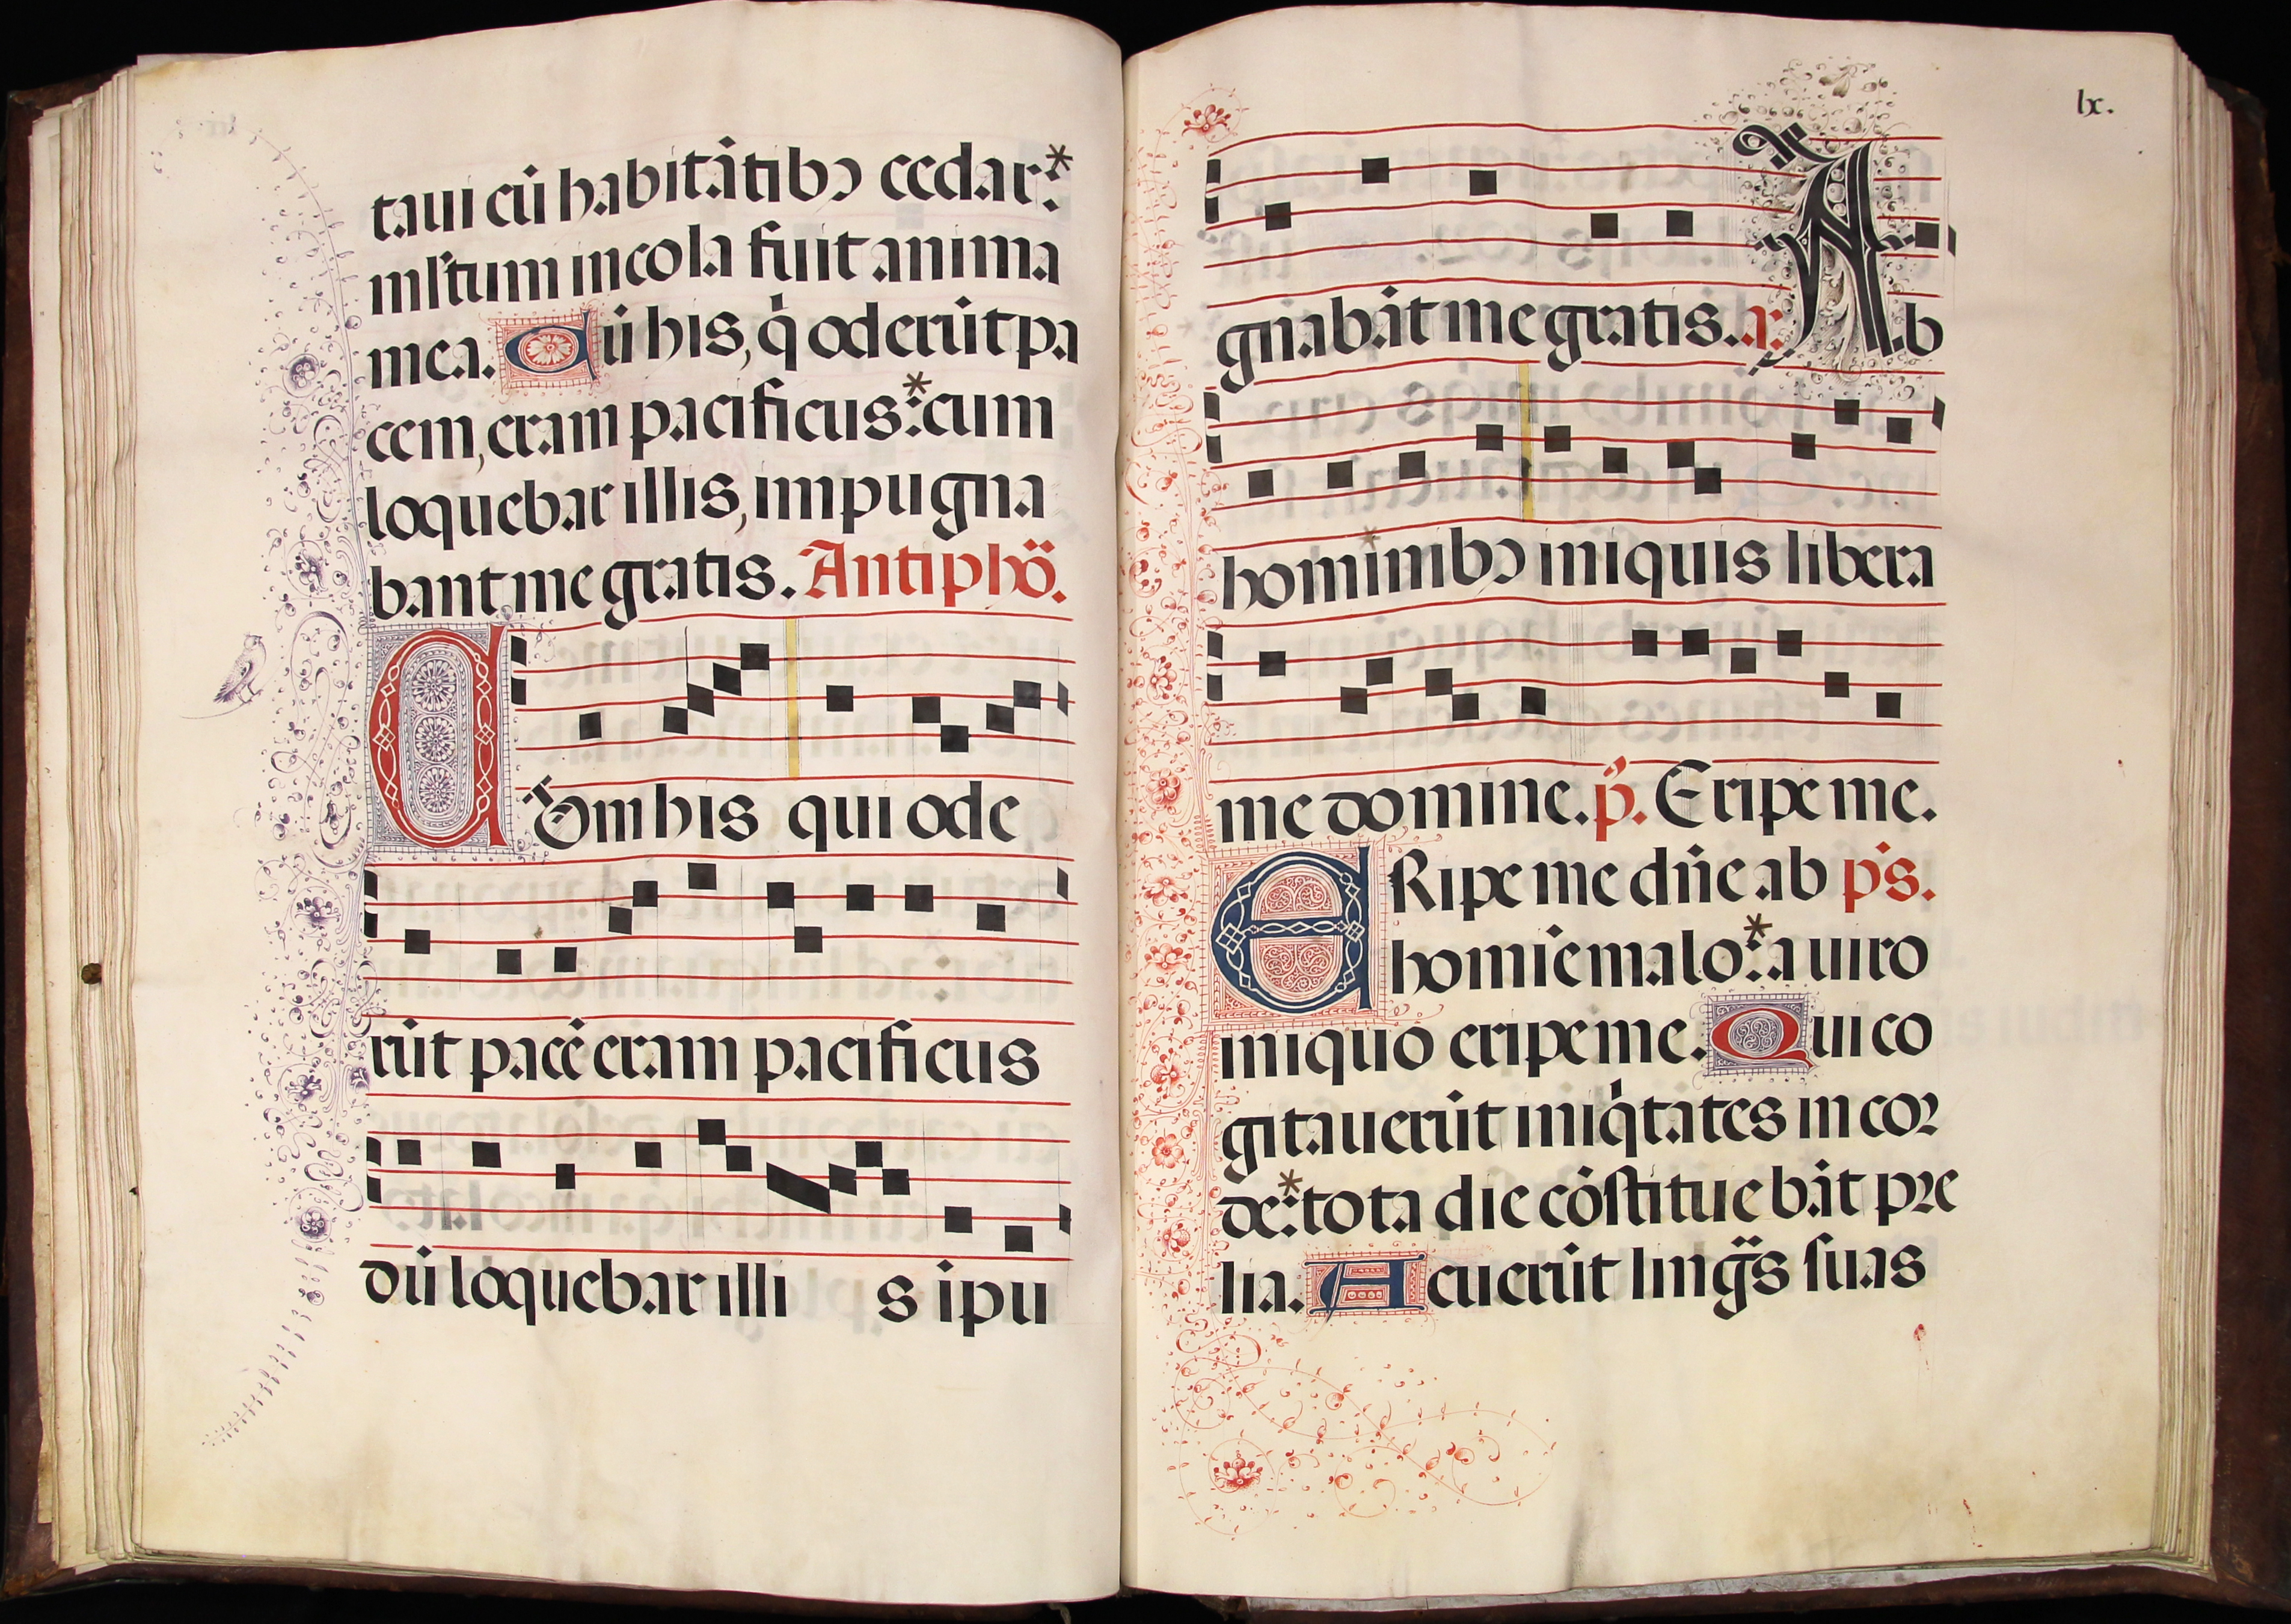 taui cū habitātibꝯ cedar:*
mĺtum incola fuit anima
mea. Cū his, q̇ oderūt pa
cem, eram pacificus:* cum
loquebar illis, impugna
bant me gratis. Antiphō.
Cum his qui ode
rūt pacē eram pacificus
dū loquebar illi s īpu
lx.
gnabāt me gratis. a: Ab
hominibꝯ iniquis libera
me domine. p̄. Eripe me.
ERipe me dn̄e ab ps̄.
homīe malo:* a uiro
iniquo eripe me. Qui co
gitauerūt iniq̇tates in coꝛ
de:* tota die cōſtituebāt pꝛe
lia. Acuerūt linḡs ſuas